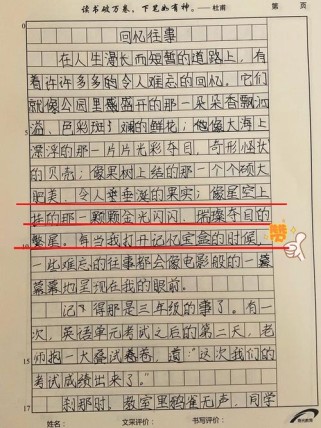 读书破万卷，下笔如有神。——杜甫 第 页
0
回忆往事
在人生漫长而短暂的道路上，有
着许许多多的令人难忘的回忆。它们
就像公园里盛开的那一朵朵香飘四
5
溢、色彩斑斓的鲜花；像大海上
漂浮的那一片片光彩夺目，奇形怪状
的贝壳；像果树上结的那一个个硕大
肥美，令人垂垂涎的果实；像星空上
挂的那一颗颗金光闪闪、璀璨夺目的
10
繁星。每当我打开记忆宝盒的时候，
一些难忘的往事都会像电影般的一幕
幕地呈现在我的眼前。
记得那是三年级的事了。有一
次，英语单元考试之后的第二天，老
15
师抱一大叠试卷，道：“这次我们的
考试成绩出来了。”
17
刹那时，教室里鸦雀无声，同学
姓名： 作文评价： 书写评价：